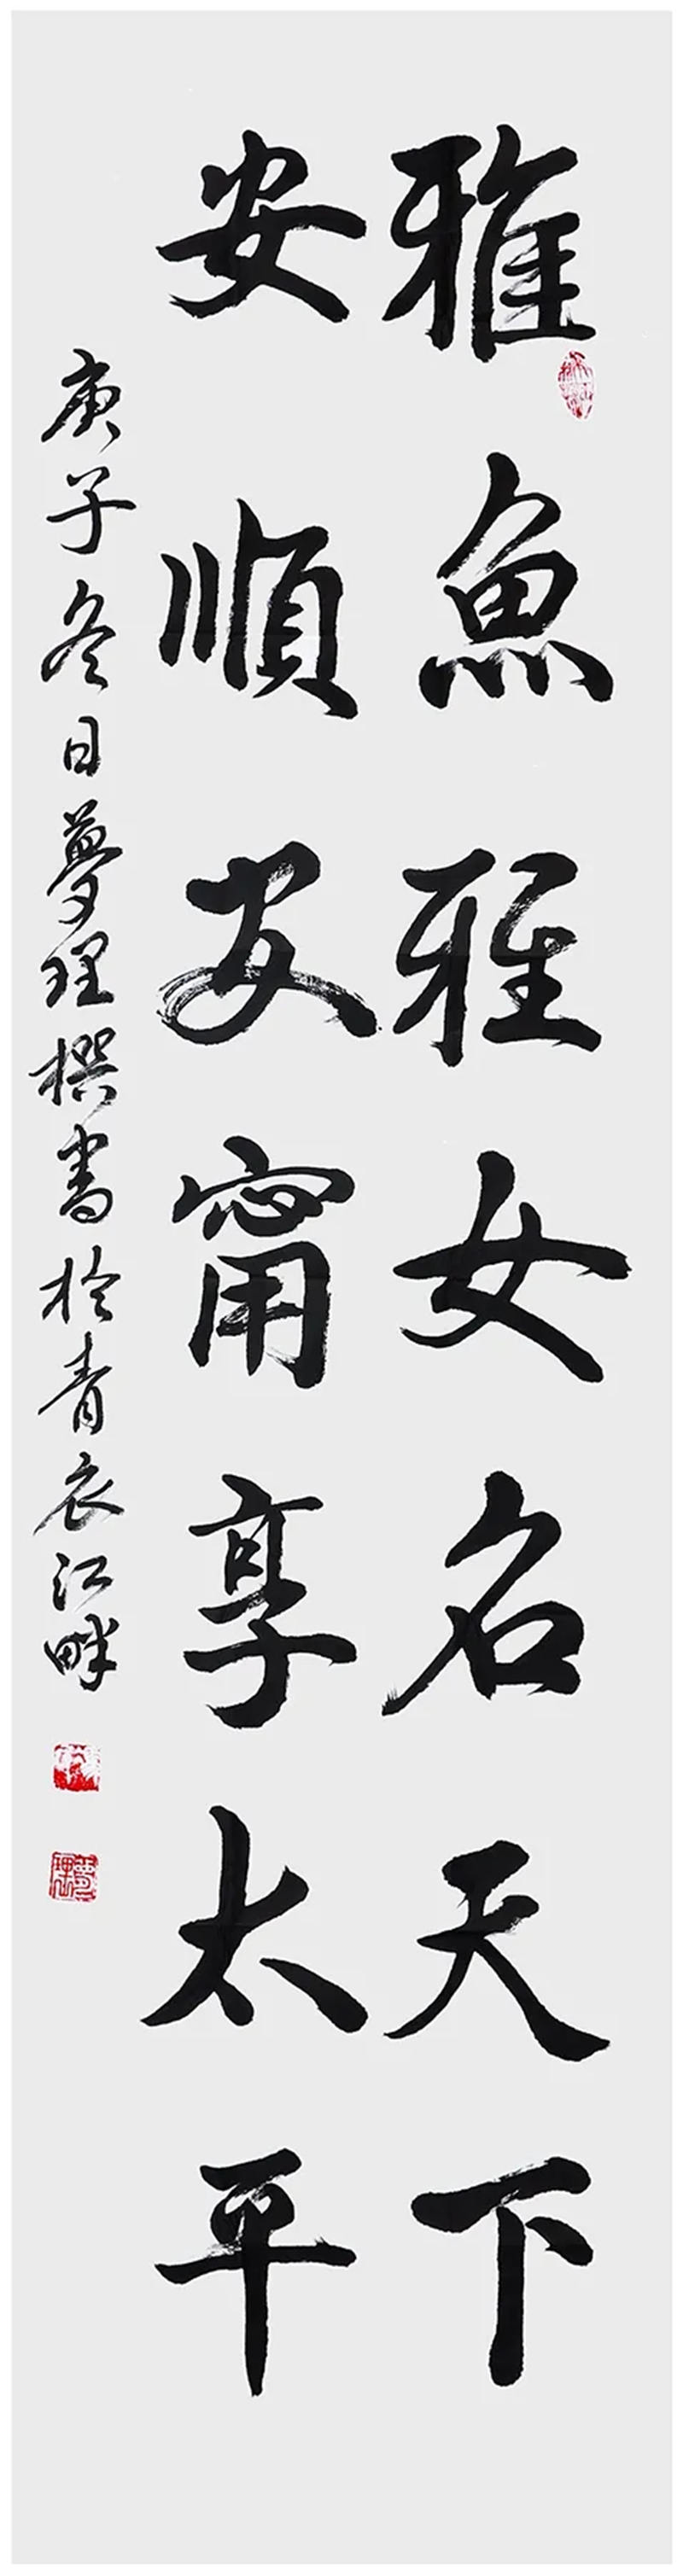 雅魚雅女名天下
安順安甯享太平
庚子冬日夢理撰書於青衣江畔